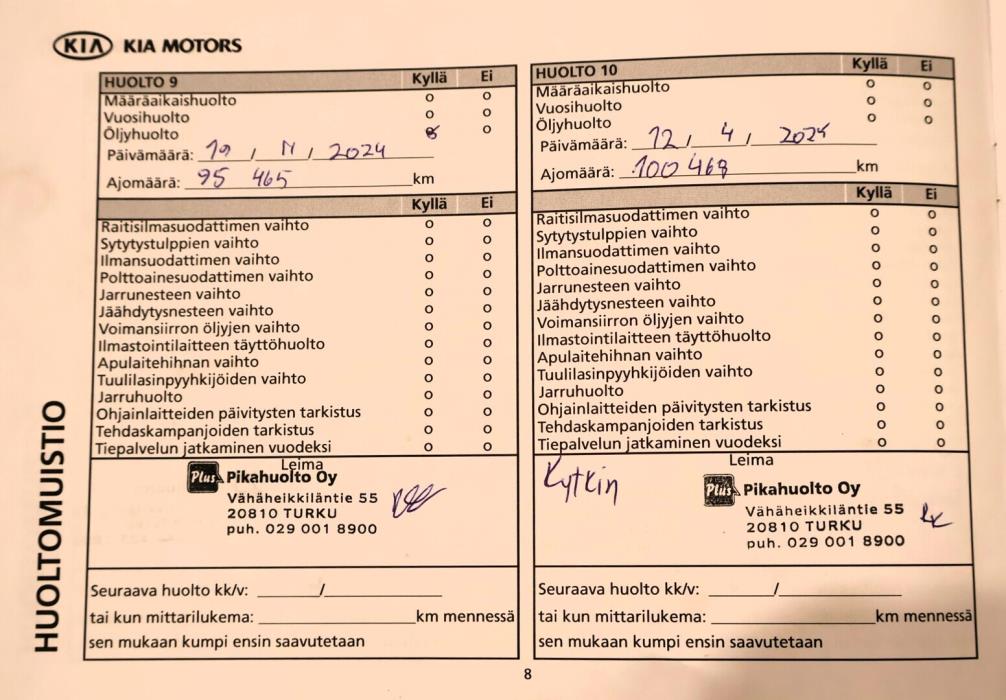 KIA KIA MOTORS
HUOLTO 9 Kyllä Ei
Määräaikaishuolto o o
Vuosihuolto o o
Öljyhuolto o o
Päivämäärä: 19 / 11 / 2024
Ajomäärä: 95 465 km
Kyllä Ei
Raitisilmasuodattimen vaihto o o
Sytytystulppien vaihto o o
Ilmansuodattimen vaihto o o
Polttoainesuodattimen vaihto o o
Jarrunesteen vaihto o o
Jäähdytysnesteen vaihto o o
Voimansiirron öljyjen vaihto o o
Ilmastointilaitteen täyttöhuolto o o
Apulaitehihnan vaihto o o
Tuulilasinpyyhkijöiden vaihto o o
Jarruhuolto o o
Ohjainlaitteiden päivitysten tarkistus o o
Tehdaskampanjoiden tarkistus o o
Tiepalvelun jatkaminen vuodeksi o o
Leima
Plus Pikahuolto Oy
Vähäheikkiläntie 55
20810 TURKU
puh. 029 001 8900
Seuraava huolto kk/v: ______/____________
tai kun mittarilukema: ________________km mennessä
sen mukaan kumpi ensin saavutetaan
HUOLTO 10 Kyllä Ei
Määräaikaishuolto o o
Vuosihuolto o o
Öljyhuolto o o
Päivämäärä: 12 / 4 / 2025
Ajomäärä: 100 468 km
Kyllä Ei
Raitisilmasuodattimen vaihto o o
Sytytystulppien vaihto o o
Ilmansuodattimen vaihto o o
Polttoainesuodattimen vaihto o o
Jarrunesteen vaihto o o
Jäähdytysnesteen vaihto o o
Voimansiirron öljyjen vaihto o o
Ilmastointilaitteen täyttöhuolto o o
Apulaitehihnan vaihto o o
Tuulilasinpyyhkijöiden vaihto o o
Jarruhuolto o o
Ohjainlaitteiden päivitysten tarkistus o o
Tehdaskampanjoiden tarkistus o o
Tiepalvelun jatkaminen vuodeksi o o
Leima
Kytkin
Plus Pikahuolto Oy
Vähäheikkiläntie 55
20810 TURKU
puh. 029 001 8900
Seuraava huolto kk/v: ______/____________
tai kun mittarilukema: ________________km mennessä
sen mukaan kumpi ensin saavutetaan
HUOLTOMUISTIO
8